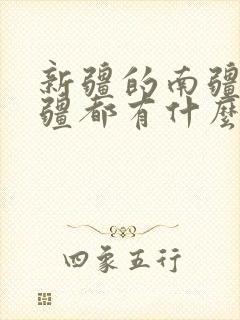 新疆的南疆
疆都有什麼
四象五行